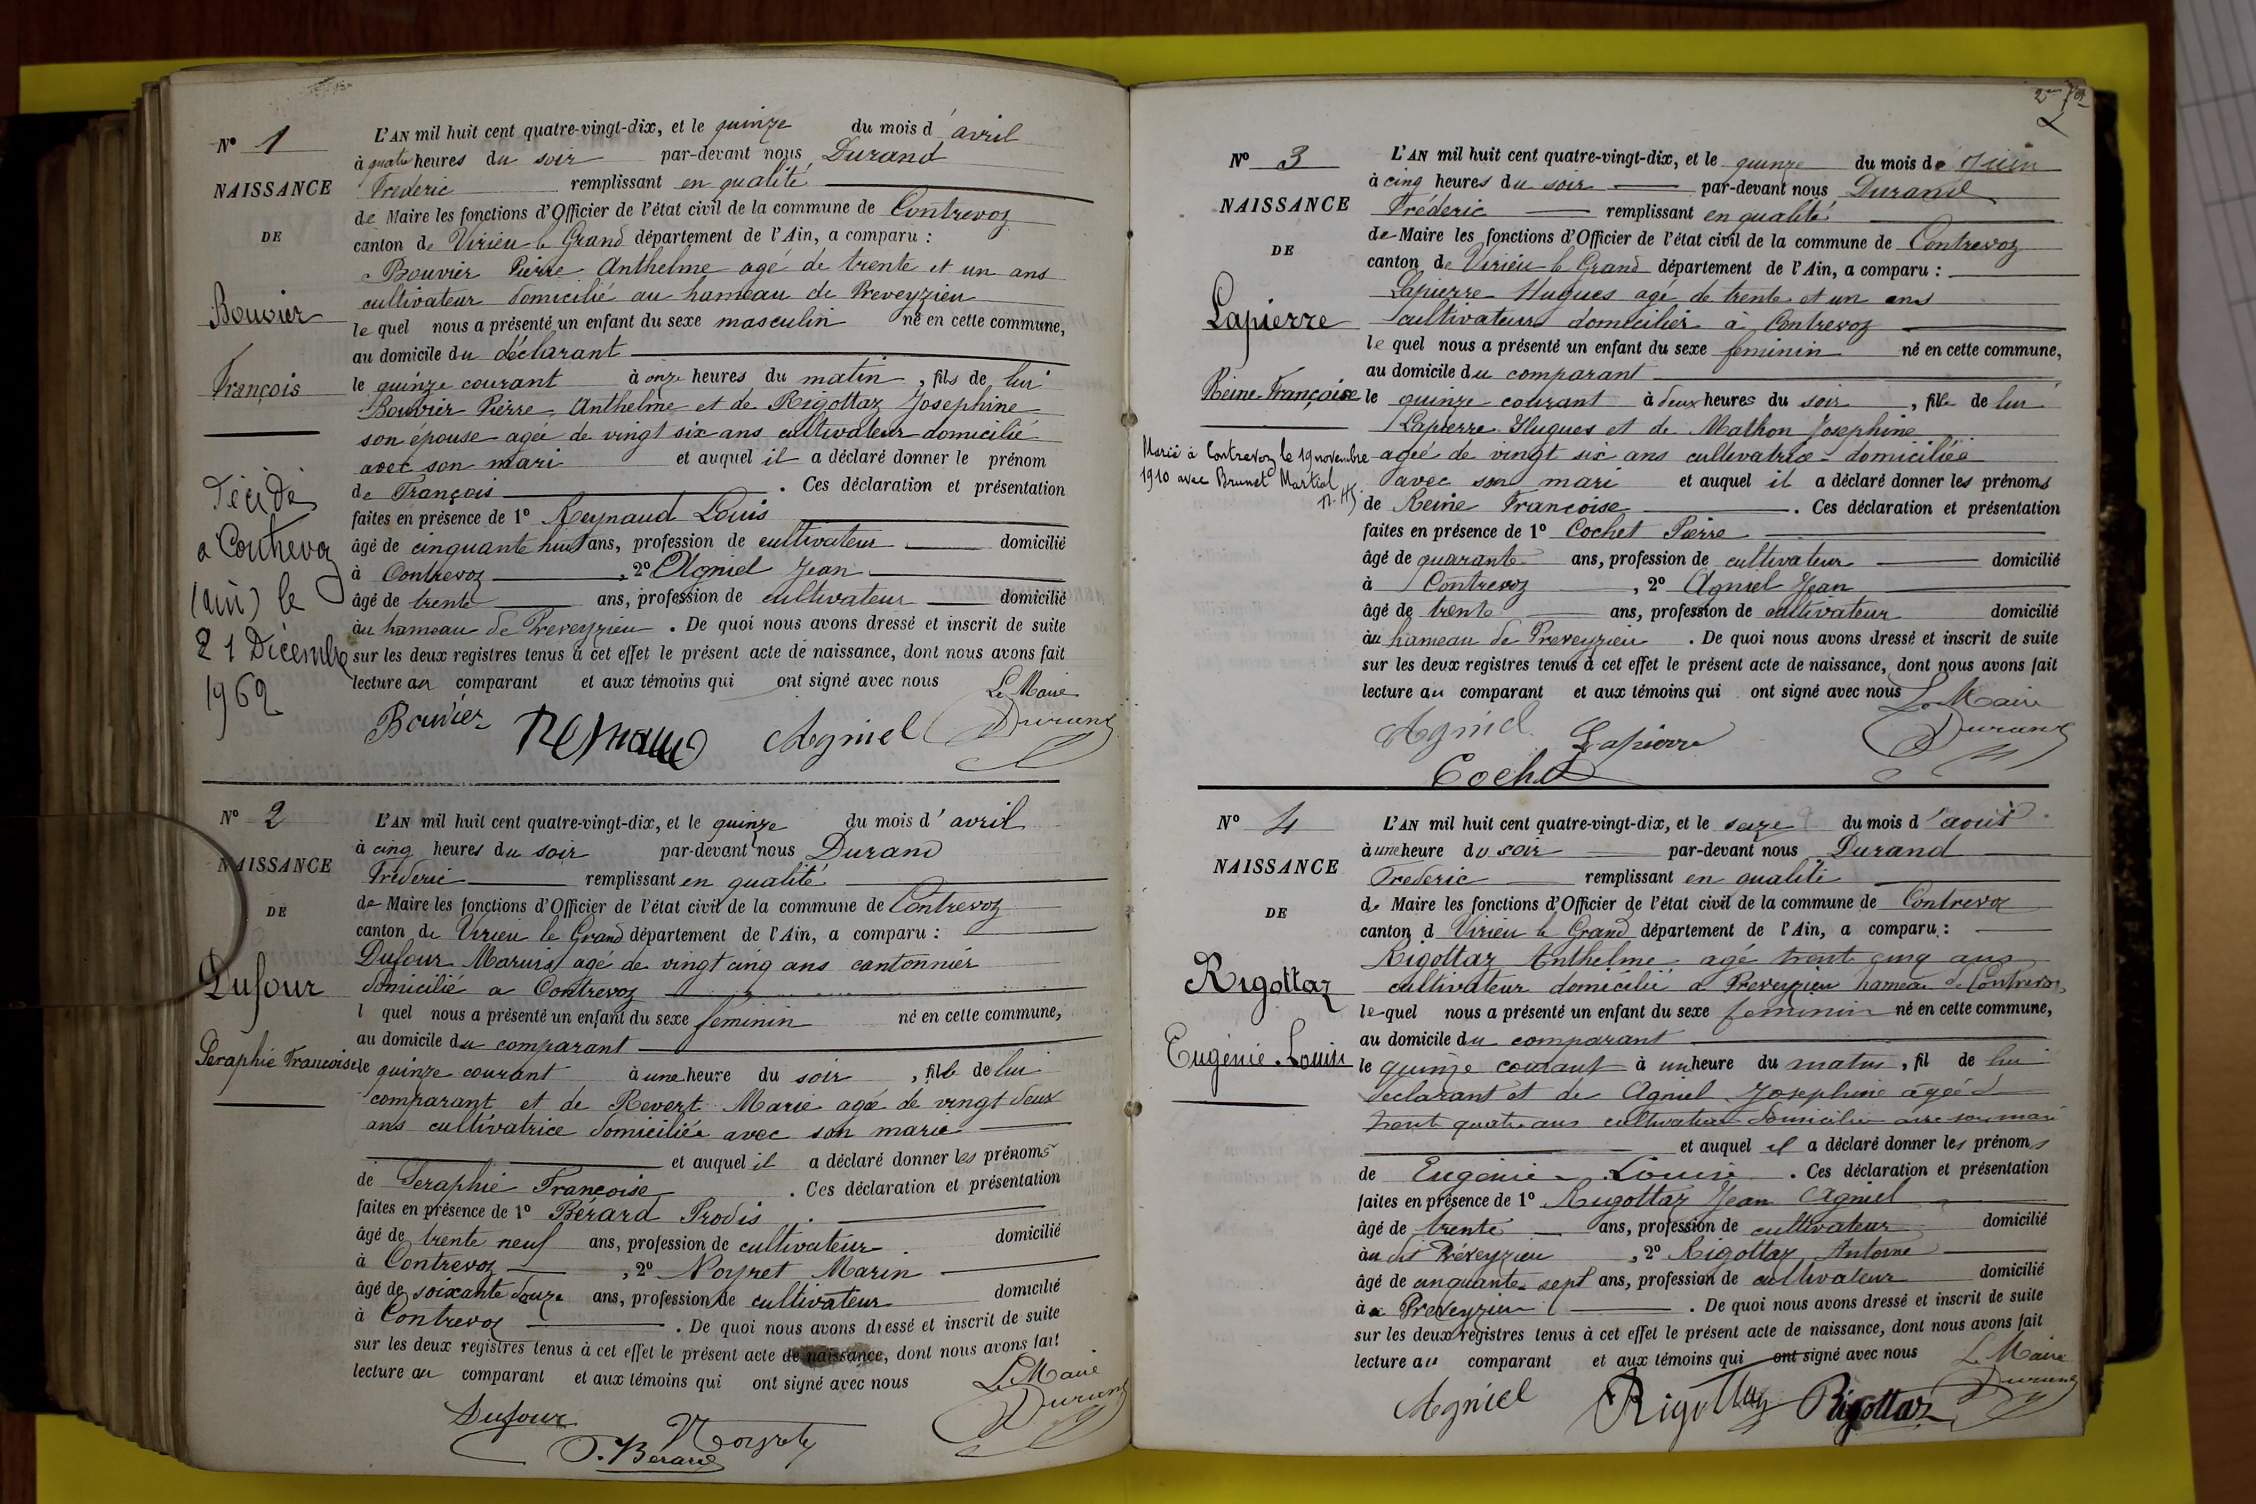 Nº 1
NAISSANCE
DE
Bouvier
François
Décidé
a Contrevoz
(ain) le
21 Décembre
1962
L'AN mil huit cent quatre-vingt-dix, et le quinze du mois d'avril
à quatre heures du soir par-devant nous Durand
Frederic remplissant en qualité
de Maire les fonctions d'Officier de l'état civil de la commune de Contrevoz
canton de Virieu le Grand département de l'Ain, a comparu :
Bouvier Pierre Anthelme agé de trente et un ans
cultivateur domicilié au hameau de Preveyzieu
le quel nous a présenté un enfant du sexe masculin né en cette commune,
au domicile du déclarant
le quinze courant à onze heures du matin, fils de lui
Bouvier Pierre Anthelme et de Rigottaz Josephine
son épouse agée de vingt six ans cultivateur domicilié
avec son mari et auquel il a déclaré donner le prénom
de François. Ces déclaration et présentation
faites en présence de 1º Reynaud Louis
âgé de cinquante huit ans, profession de cultivateur domicilié
à Contrevoz, 2º Agniel Jean
âgé de trente ans, profession de cultivateur domicilié
au hameau de Preveyzieu. De quoi nous avons dressé et inscrit de suite
sur les deux registres tenus à cet effet le présent acte de naissance, dont nous avons fait
lecture au comparant et aux témoins qui ont signé avec nous
Le Maire
Bouvier Reynaud Agniel Durand
Nº 2
NAISSANCE
DE
Dufour
Seraphie Francoise
L'AN mil huit cent quatre-vingt-dix, et le quinze du mois d'avril
à cinq heures du soir par-devant nous Durand
Frederic remplissant en qualité
de Maire les fonctions d'Officier de l'état civil de la commune de Contrevoz
canton de Virieu le Grand département de l'Ain, a comparu :
Dufour Marius agé de vingt cinq ans cantonnier
domicilié a Contrevoz
l quel nous a présenté un enfant du sexe feminin né en cette commune,
au domicile du comparant
le quinze courant à une heure du soir, fille de lui
comparant et de Revert Marie agée de vingt deux
ans cultivatrice domiciliée avec son marie
et auquel il a déclaré donner les prénoms
de Seraphie Francoise. Ces déclaration et présentation
faites en présence de 1º Bérard Prodis
âgé de trente neuf ans, profession de cultivateur domicilié
à Contrevoz, 2º Noyret Marin
âgé de soixante douze ans, profession de cultivateur domicilié
à Contrevoz. De quoi nous avons dressé et inscrit de suite
sur les deux registres tenus à cet effet le présent acte de naissance, dont nous avons fait
lecture au comparant et aux témoins qui ont signé avec nous
Le Maire
Dufour Noyret Durand
P. Berard
2
Nº 3
NAISSANCE
DE
Lapierre
Reine Françoise
Marié à Contrevoz le 19 novembre
1910 avec Brunet Martial
L'AN mil huit cent quatre-vingt-dix, et le quinze du mois de Juin
à cinq heures du soir par-devant nous Durand
Fréderic remplissant en qualité
de Maire les fonctions d'Officier de l'état civil de la commune de Contrevoz
canton de Virieu le Grand département de l'Ain, a comparu :
Lapierre Hugues agé de trente et un ans
cultivateur domicilier à Contrevoz
le quel nous a présenté un enfant du sexe feminin né en cette commune,
au domicile du comparant
le quinze courant à deux heures du soir, fille de lui
Lapierre Hugues et de Mathon Josephine
ageé de vingt six ans cultivatrice domiciliée
avec son mari et auquel il a déclaré donner les prénoms
de Reine Francoise. Ces déclaration et présentation
faites en présence de 1º Cochet Pierre
âgé de quarante ans, profession de cultivateur domicilié
à Contrevoz, 2º Agniel Jean
âgé de trente ans, profession de cultivateur domicilié
au hameau de Preveyzieu. De quoi nous avons dressé et inscrit de suite
sur les deux registres tenus à cet effet le présent acte de naissance, dont nous avons fait
lecture au comparant et aux témoins qui ont signé avec nous
Le Maire
Agniel Lapierre Durand
Cochet
Nº 4
NAISSANCE
DE
Rigottaz
Eugénie Louise
L'AN mil huit cent quatre-vingt-dix, et le seize du mois d'août
à une heure du soir par-devant nous Durand
Frederic remplissant en qualité
de Maire les fonctions d'Officier de l'état civil de la commune de Contrevoz
canton d Virieu le Grand département de l'Ain, a comparu :
Rigottaz Anthelme agé trent cinq ans
cultivateur domicilié a Preveyzieu hameau de Contrevoz
le quel nous a présenté un enfant du sexe feminin né en cette commune,
au domicile du comparant
le quinze courant à un heure du matin, fil de lui
declarant et de Agniel Josephine agée d
trent quatre ans cultivateur domicilié avec son mari
et auquel il a déclaré donner les prénoms
de Eugénie Louise. Ces déclaration et présentation
faites en présence de 1º Rigottaz Jean Agniel
âgé de trente ans, profession de cultivateur domicilié
au dit Préveyzieu, 2º Rigottaz Antoine
âgé de cinquante sept ans, profession de cultivateur domicilié
à a Preveyzieu. De quoi nous avons dressé et inscrit de suite
sur les deux registres tenus à cet effet le présent acte de naissance, dont nous avons fait
lecture au comparant et aux témoins qui ont signé avec nous
Le Maire
Agniel Rigottaz Rigottaz Durand